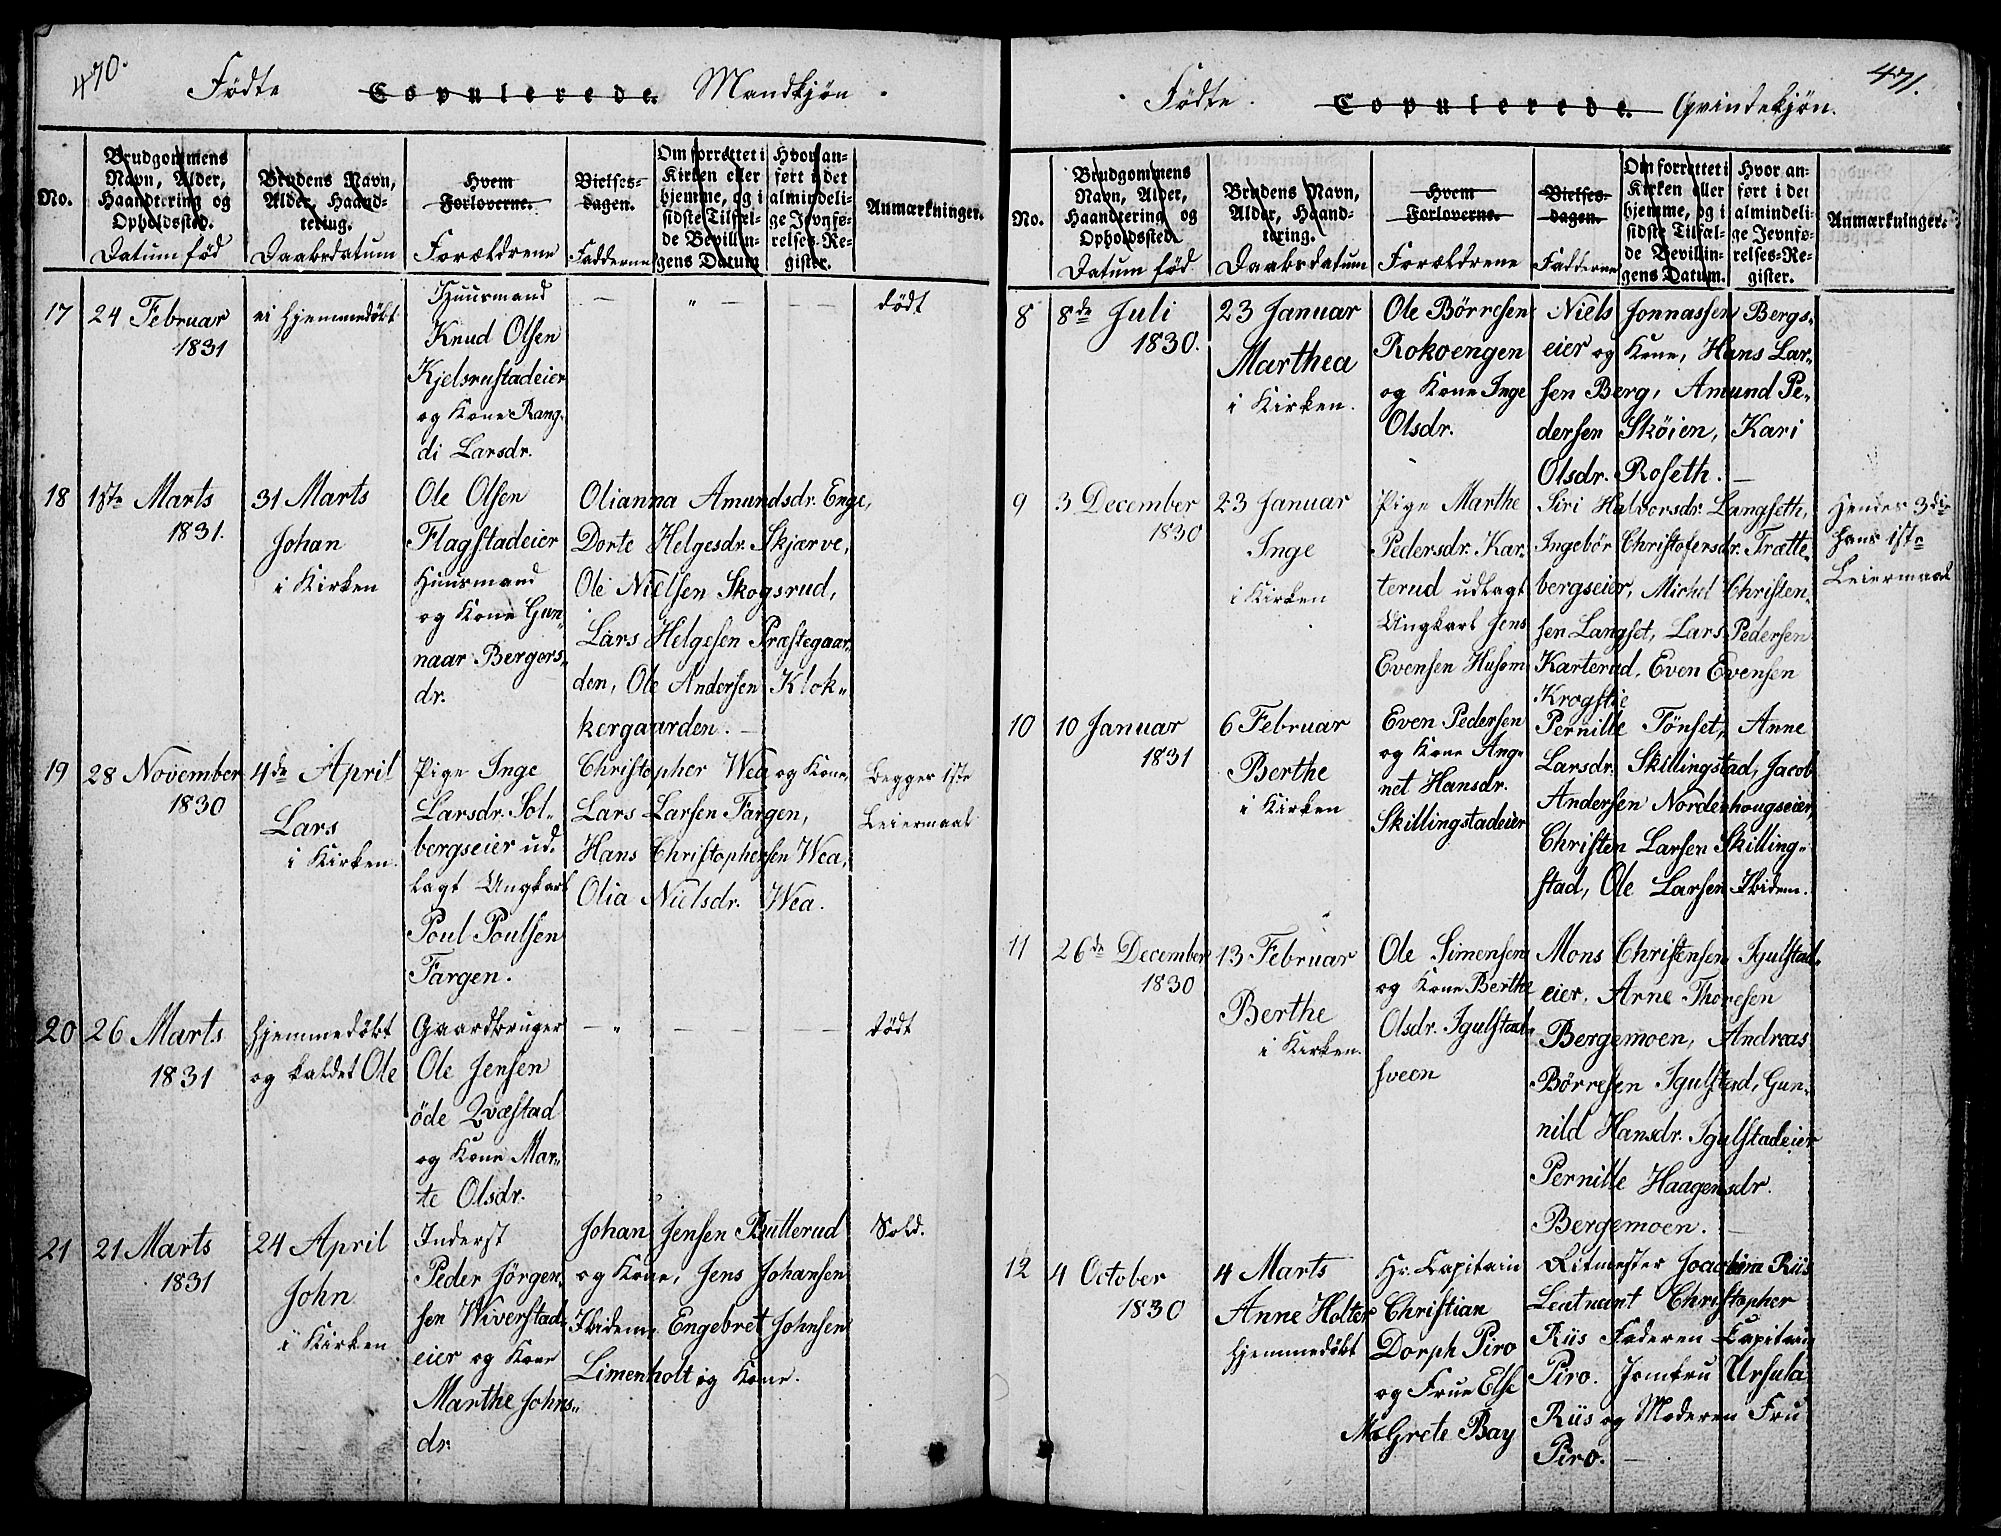 470.
Födte Copulerede. Mandkjøn.
No.
Brudgommens
Navn, Alder,
Haandtering og
Opholdssted.
Datum fød
Brudens Navn,
Alder, Haand-
tering.
Daabsdatum
Hvem
Forloverne.
Forældrene
Vielses-
dagen.
Fadderne
Om forrettet i
Kirken eller
hjemme, og i
sidste Tilfæl-
de Bevillin-
gens Datum
Hvor an-
ført i det
almindeli-
ge Jevnfø-
relses-Re-
gister.
Anmærkninger.
17
24 Februar
1831
ei hjemmedøbt
Huusmand
Knud Olsen
Kjelsrustadeier
og Kone Rang-
di Larsdr.
— " — — —
dødt
18
1ste Marts
1831.
31 Marts
Johan
i Kirken
Ole Olsen
Flagstadeier
Huusmand
og Kone Gun-
naar Bergers-
dr.
Olianna Amundsdr. Enge,
Dorte Helgesdr. Skjærve,
Ole Nielsen Skogsrud,
Lars Helgesen Præstegaar-
den, Ole Andersen Klok-
kergaarden. —
19
28 November
1830
4de April
Lars
i Kirken.
Pige Inge
Larsdr. Sol-
bergseier ud-
lagt Ungkarl
Poul Poulsen
Fargen.
Christopher Wea og Kone,
Lars Larsen Fargen,
Hans Christophersen Wea,
Olia Nielsdr. Wea.
Begges 1ste
Leiermaal
20
26 Marts
1831
hjemmedøbt
og kaldet Ole
Gaardbruger
Ole Jensen
öde Qvæstad
og Kone Mar-
te Olsdr.
— " — — —
dødt
21
21 Marts
1831
24 April
John
i Kirken
Inderst
Peder Jörgen-
sen Wiverstad-
eier og Kone
Marthe Johns-
dr.
Johan Jensen Butterud
og Kone, Jens Johansen
Ibidem, Engebret Johnsen
Limenholt og Kone.
Sold.
471.
Födte. Copulerede. Qvindekjøn.
No.
Brudgommens
Navn, Alder,
Haandtering og
Opholdssted.
Datum fød
Brudens Navn,
Alder, Haand-
tering.
Daabsdatum
Hvem
Forloverne.
Forældrene
Vielses-
dagen.
Fadderne
Om forrettet i
Kirken eller
hjemme, og i
sidste Tilfæl-
de Bevillin-
gens Datum.
Hvor an-
ført i det
almindeli-
ge Jevnfø-
relses-Re-
gister.
Anmærkninger.
8
8de Juli
1830.
23 Januar
Marthea
i Kirken.
Ole Börresen
Rokoengen
og Kone Inge
Olsdr.
Niels Jonnassen Bergs-
eier og Kone, Hans Lar-
sen Berg, Amund Pe-
dersen Sköien, Kari
Olsdr. Roseth. —
9
3 December
1830
23 Januar
Inge
i Kirken
Pige Marthe
Pedersdr. Kar-
terud udlagt
Ungkarl Jens
Evensen Husom
Siri Halvorsdr. Langseth,
Ingebör Christofersdr. Trætte-
bergseier, Michel Christen-
sen Langset, Lars Pedersen
Karterud, Even Evensen
Krogstie
Hendes 3die
hans 1ste
Leiermaal
10
10 Januar
1831
6 Februar
Berthe
i Kirken
Even Pedersen
og Kone Ang-
net Hansdr.
Skillingstadeier
Pernille Tönset, Anne
Larsdr. Skillingstad, Jacob
Andersen Nordenhougseier,
Christen Larsen Skilling-
stad, Ole Larsen Ibidem.
11
26de December
1830
13 Februar
Berthe
i Kirken.
Ole Simensen
og Kone Berthe
Olsdr. Igulstad-
sveen
Mons Christensen Igulstad-
eier, Arne Thoresen
Bergemoen, Andreas
Börresen Igulstad, Gun-
nild Hansdr. Igulstadeier
Pernille Haagensdr.
Bergemoen. —
12
4 October
1830
4 Marts
Anne Holter
hjemmedøbt
Hr. Capitain
Christian
Dorph Piro
og Frue Else
MGrete Bay
Ritmester Joachim Riis
Leutnant Christopher
Riis Faderen Capitain
Piro. Jomfru Ursula
Riis og Moderen Fru
Piro. —